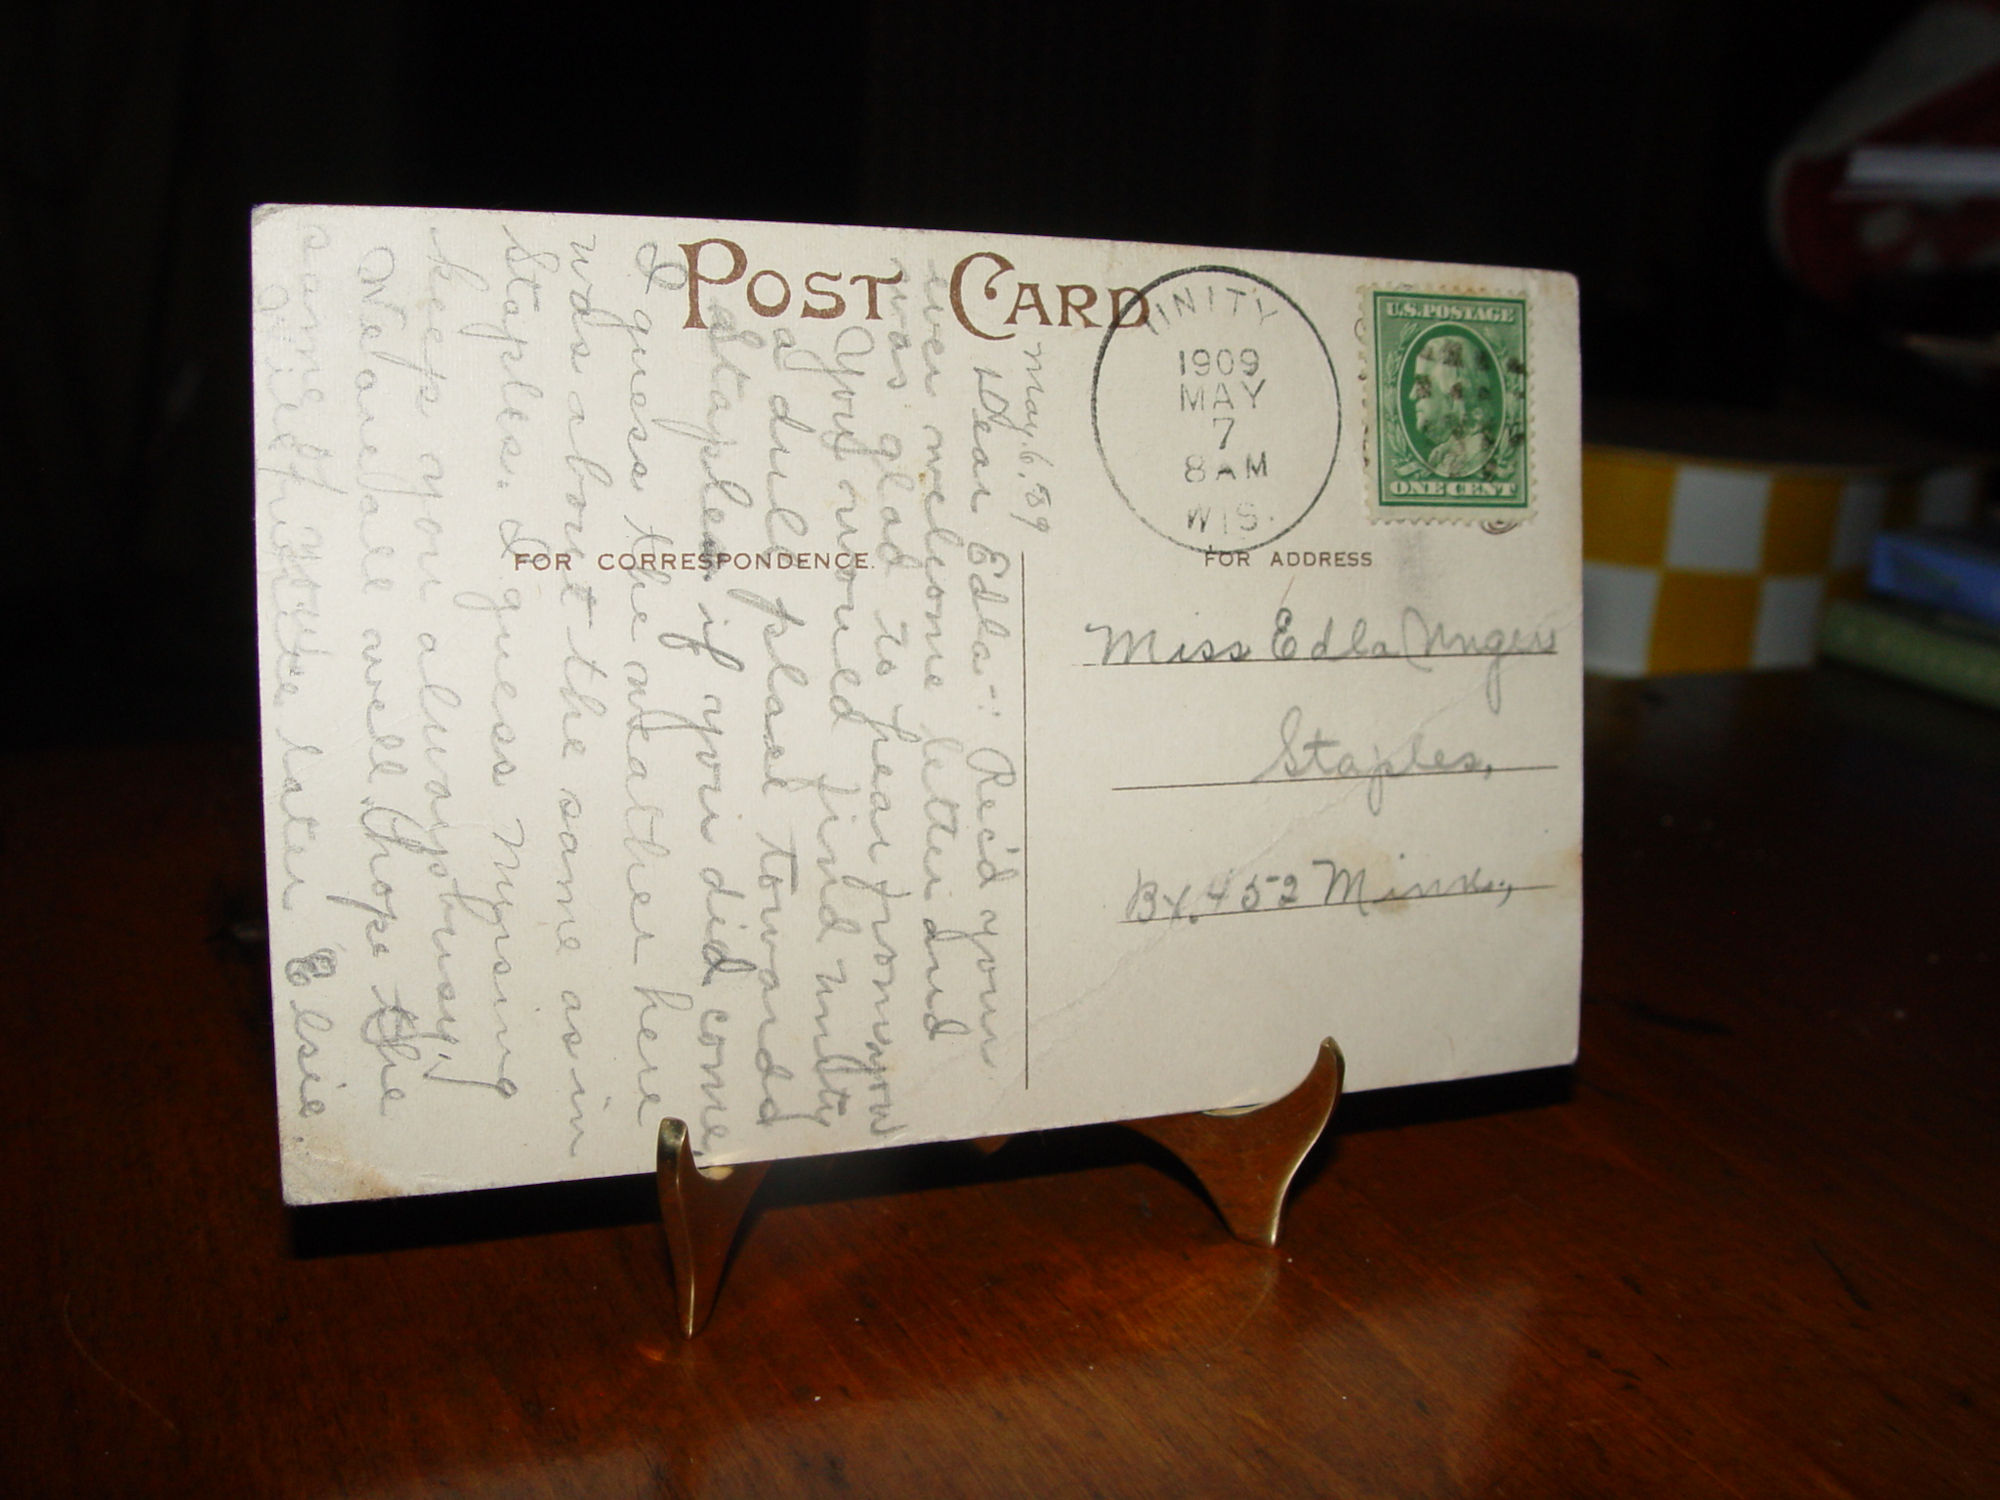 POST CARD
UNITY
1909
MAY
7
8 AM
WIS.
U.S. POSTAGE
ONE CENT
FOR CORRESPONDENCE.
FOR ADDRESS
Miss Edla Ungers
Staples,
Bx. 452 Minn.,
May 6, '09
Dear Edla:- Rec'd your
ever welcome letter and
was glad to hear from you
You would find Unity
a dull place towards
Staples if you did come,
I guess the weather here
was about the same as in
Staples. I guess nursing
keeps you always busy.
We are all well, hope the
same
Will write later Elsie.